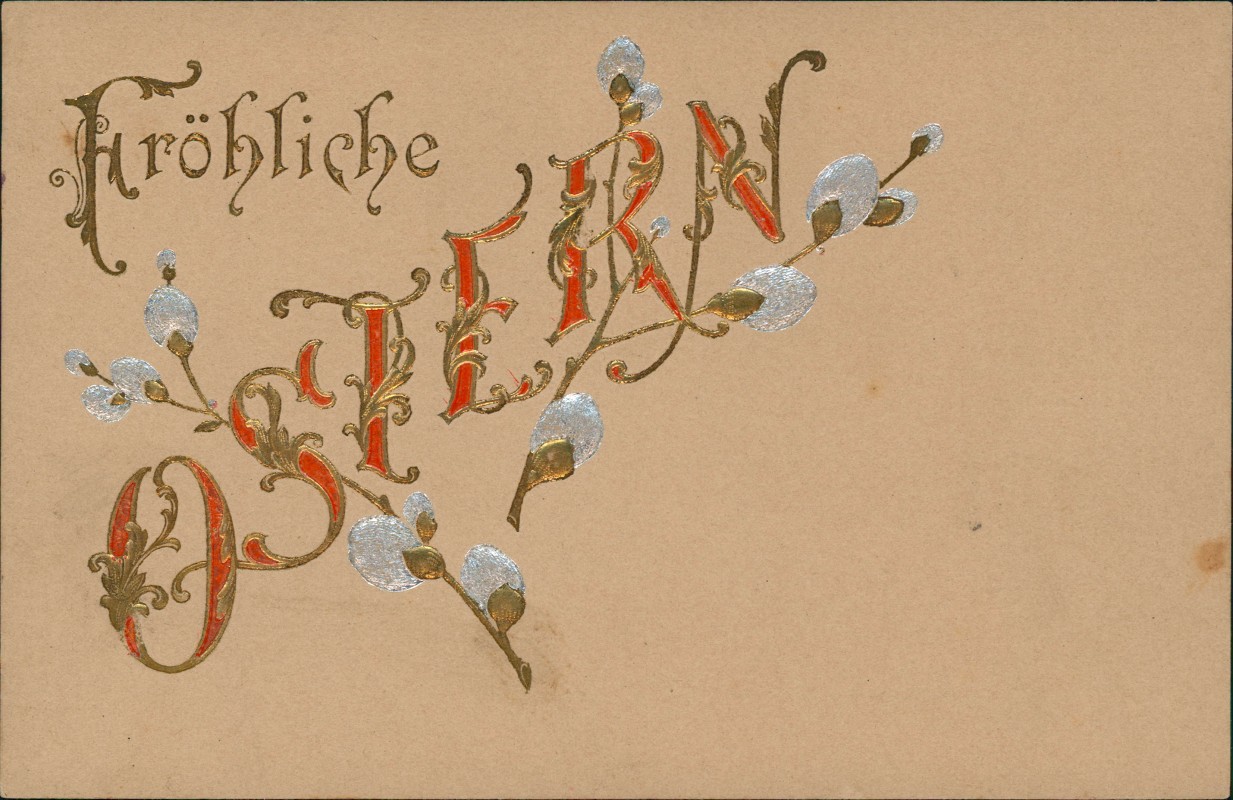 Fröhliche
OSTERN